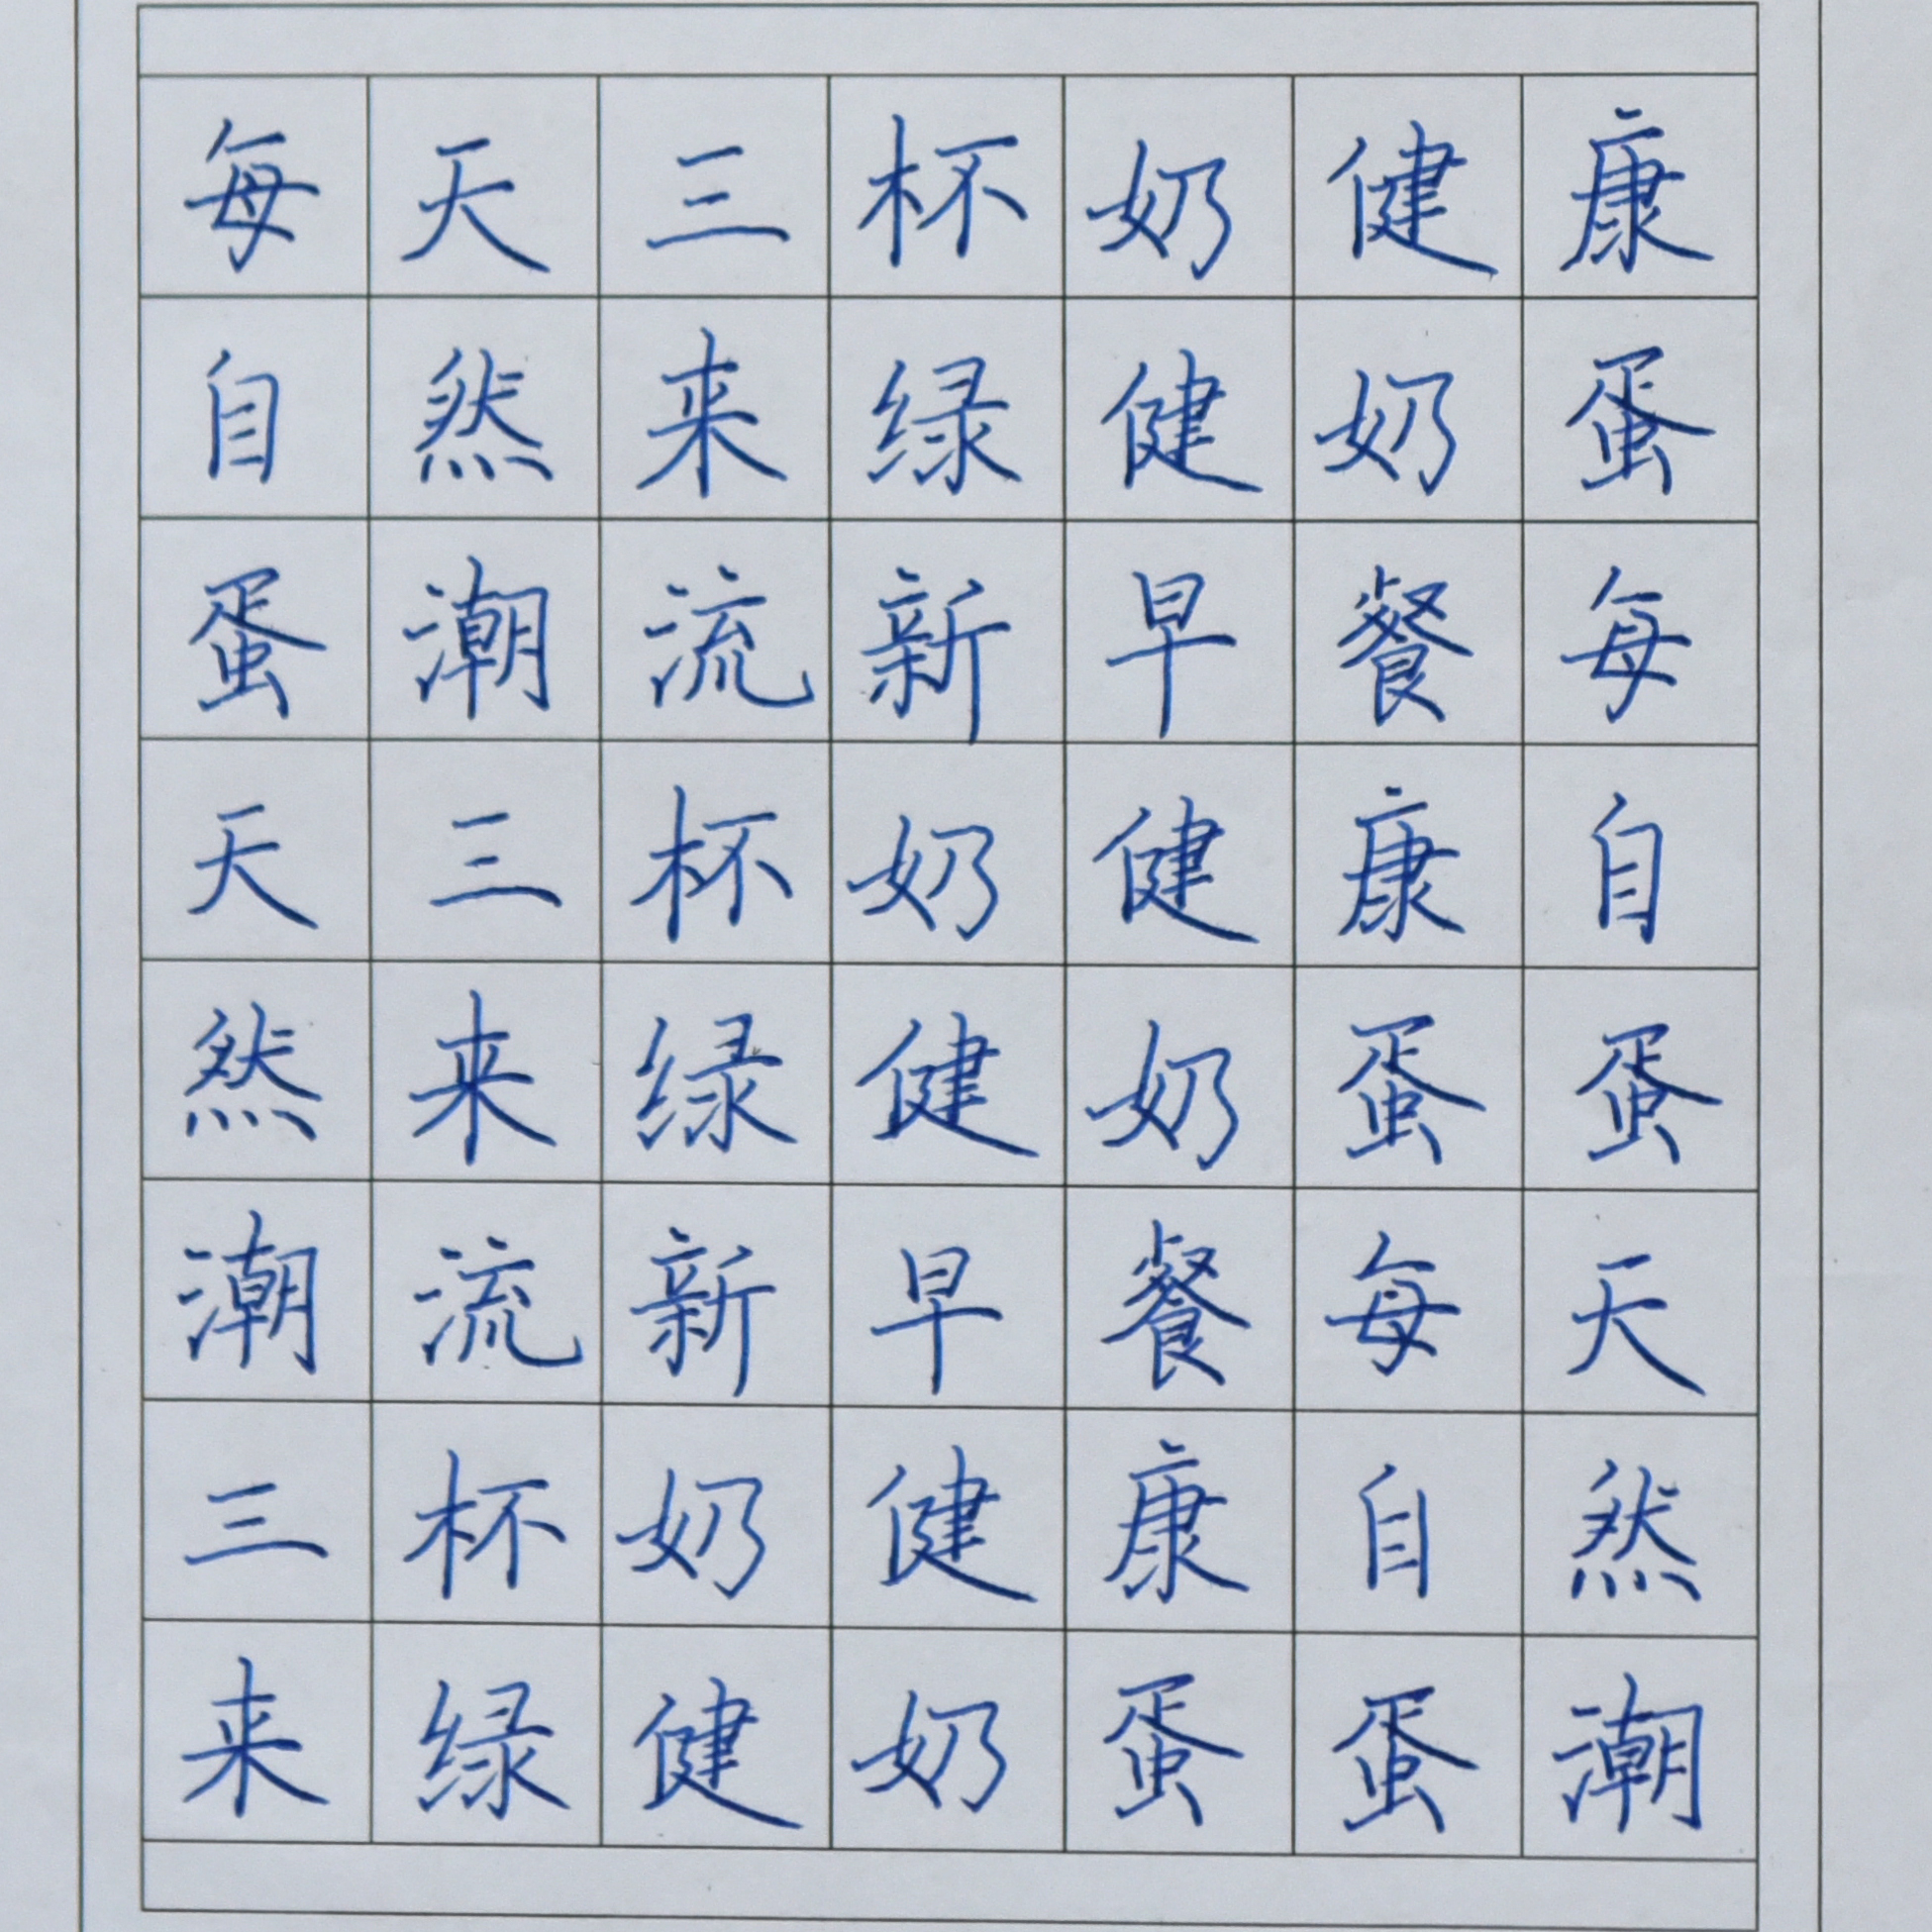 每天三杯奶健康
自然来绿健奶蛋
蛋潮流新早餐每
天三杯奶健康自
然来绿健奶蛋蛋
潮流新早餐每天
三杯奶健康自然
来绿健奶蛋蛋潮